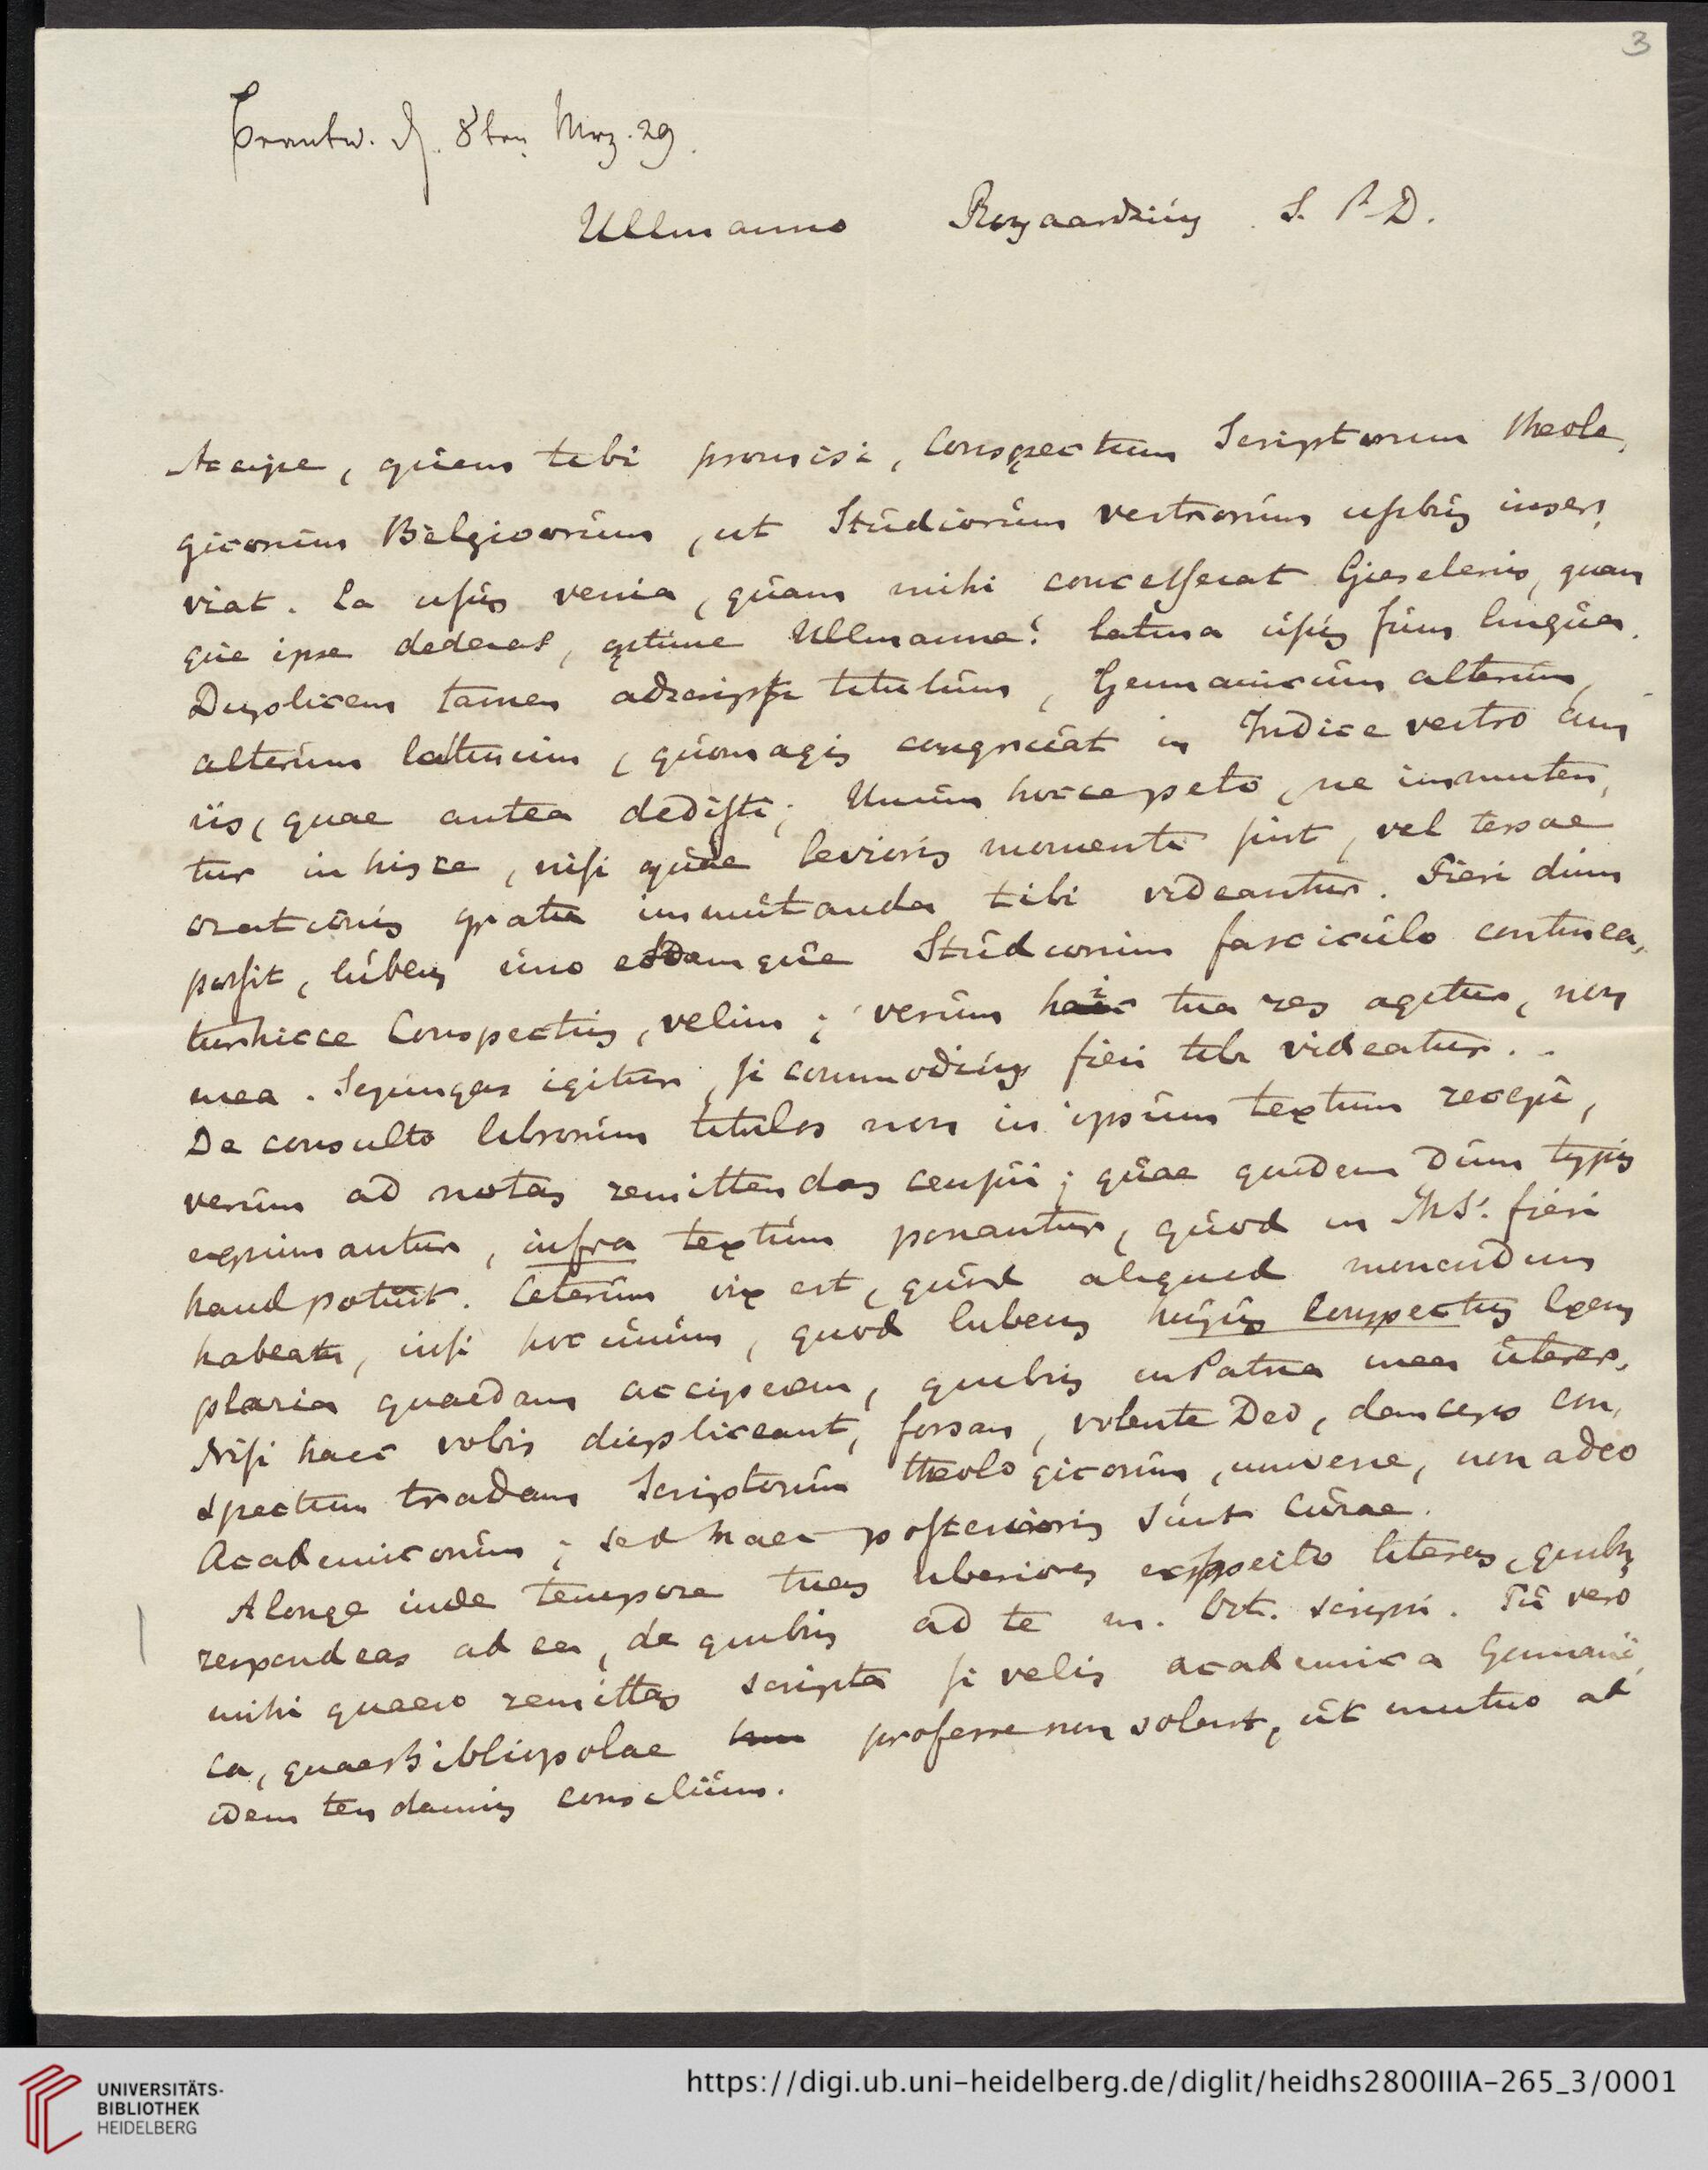 3
Beantw. d. 8ten Mrz. 29.
Ullmanno Royaardsius S. P. D.
Accipe, quem tibi promisi, Conspectum Scriptorum theolo,
gicorum Belgicorum, ut Studiorum vestrorum usibus inser,
viat. Ea usus venia, quam mihi concesserat Gieselerus, quam
que ipse dederas, optime Ullmanne! latina usus sum lingua.
Duplicem tamen adscripsi titulum, Germanicum alterum,
alterum latinum, quo magis congruat in Indice vestro cum
iis, quae antea dedisti; Unum hocce peto, ne immuten,
tur in hisce, nisi quae levioris momenti sint, vel tersae
orationis gratia immutanda tibi videantur. Fieri dum
possit, lubens uno eodemque Studiorum fasciculo continea,
tur hicce Conspectus, velim; verum hic tua res agitur, non
mea. Sejungas igitur, si commodius fieri tibi videatur. -
De consulto librorum titulos non in ipsum textum recepi,
verum ad notas remittendas censui; quae quidem dum typis
exprimantur, infra textum ponantur, quod in MS. fieri
haud potuit. Ceterum vix est, quod aliquid monendum
habeam, nisi hoc unum, quod lubens hujus Conspectus Exem
plaria quaedam accipiam, quibus in Patria mea uterer.
Nisi haec vobis displiceant, forsan, volente Deo, deinceps con,
spectum tradam Scriptorum theologicorum, universe, non adeo
Academicorum; sed haec posterioris sunt curae.
A longe inde tempore tuas uberiores exspecto literas, quibus
respondeas ad ea, de quibus ad te m. Oct. scripsi. Tu vero
mihi quaeso remittas scripta si velis academica Germani,
ca, quae Bibliopolae proferre non solent, ut mutuo ad
idem tendamus consilium.
UNIVERSITÄTS-
BIBLIOTHEK
HEIDELBERG
https://digi.ub.uni-heidelberg.de/diglit/heidhs2800IIIA-265_3/0001